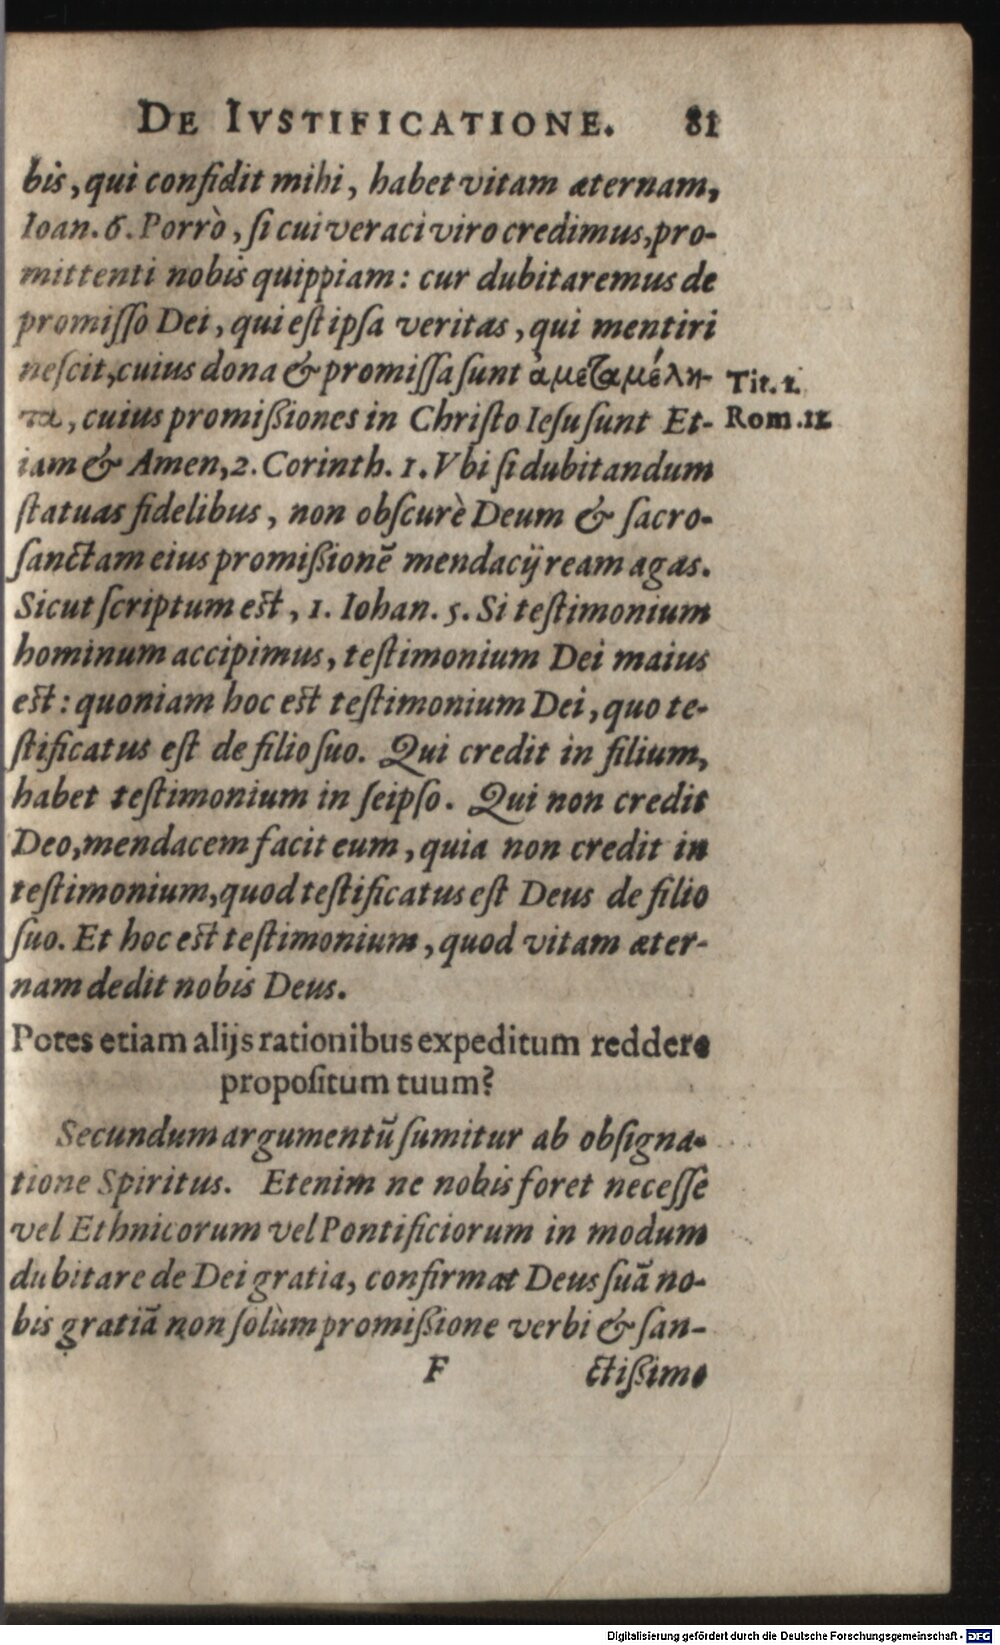 DE IVSTIFICATIONE. 81
bis, qui confidit mihi, habet vitam æternam,
Ioan. 6. Porrò, ſi cui veraci viro credimus, pro-
mittenti nobis quippiam: cur dubitaremus de
promiſſo Dei, qui eſt ipſa veritas, qui mentiri
neſcit, cuius dona & promiſſa ſunt ἀμεταμέλη- Tit. 1.
τα, cuius promißiones in Chriſto Ieſu ſunt Et- Rom. 11.
iam & Amen, 2. Corinth. 1. Vbi ſi dubitandum
ſtatuas fidelibus, non obſcurè Deum & ſacro-
ſanctam eius promißionē mendacij ream agas.
Sicut ſcriptum eſt, 1. Iohan. 5. Si teſtimonium
hominum accipimus, teſtimonium Dei maius
eſt: quoniam hoc eſt teſtimonium Dei, quo te-
ſtificatus eſt de filio ſuo. Qui credit in filium,
habet teſtimonium in ſeipſo. Qui non credit
Deo, mendacem facit eum, quia non credit in
teſtimonium, quod teſtificatus eſt Deus de filio
ſuo. Et hoc eſt teſtimonium, quod vitam æter-
nam dedit nobis Deus.
Potes etiam alijs rationibus expeditum reddere
propoſitum tuum?
Secundum argumentū ſumitur ab obſigna-
tione Spiritus. Etenim ne nobis foret neceſſe
vel Ethnicorum vel Pontificiorum in modum
dubitare de Dei gratia, confirmat Deus ſuā no-
bis gratiā non ſolùm promißione verbi & ſan-
F ctißimo
Digitalisierung gefördert durch die Deutsche Forschungsgemeinschaft - DFG